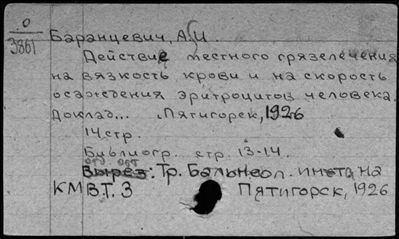 0
3861
Баранцевич, А.И.
Действие местного грязелечения
на вязкость крови и на скорость
осаждения эритроцитов человека.
Доклад... Пятигорск, 1926
14 стр.
Библиогр. стр. 13-14.
отд. отт.
Вырез: Тр. Бальнеол. инста на
КМВ Т. 3 Пятигорск, 1926